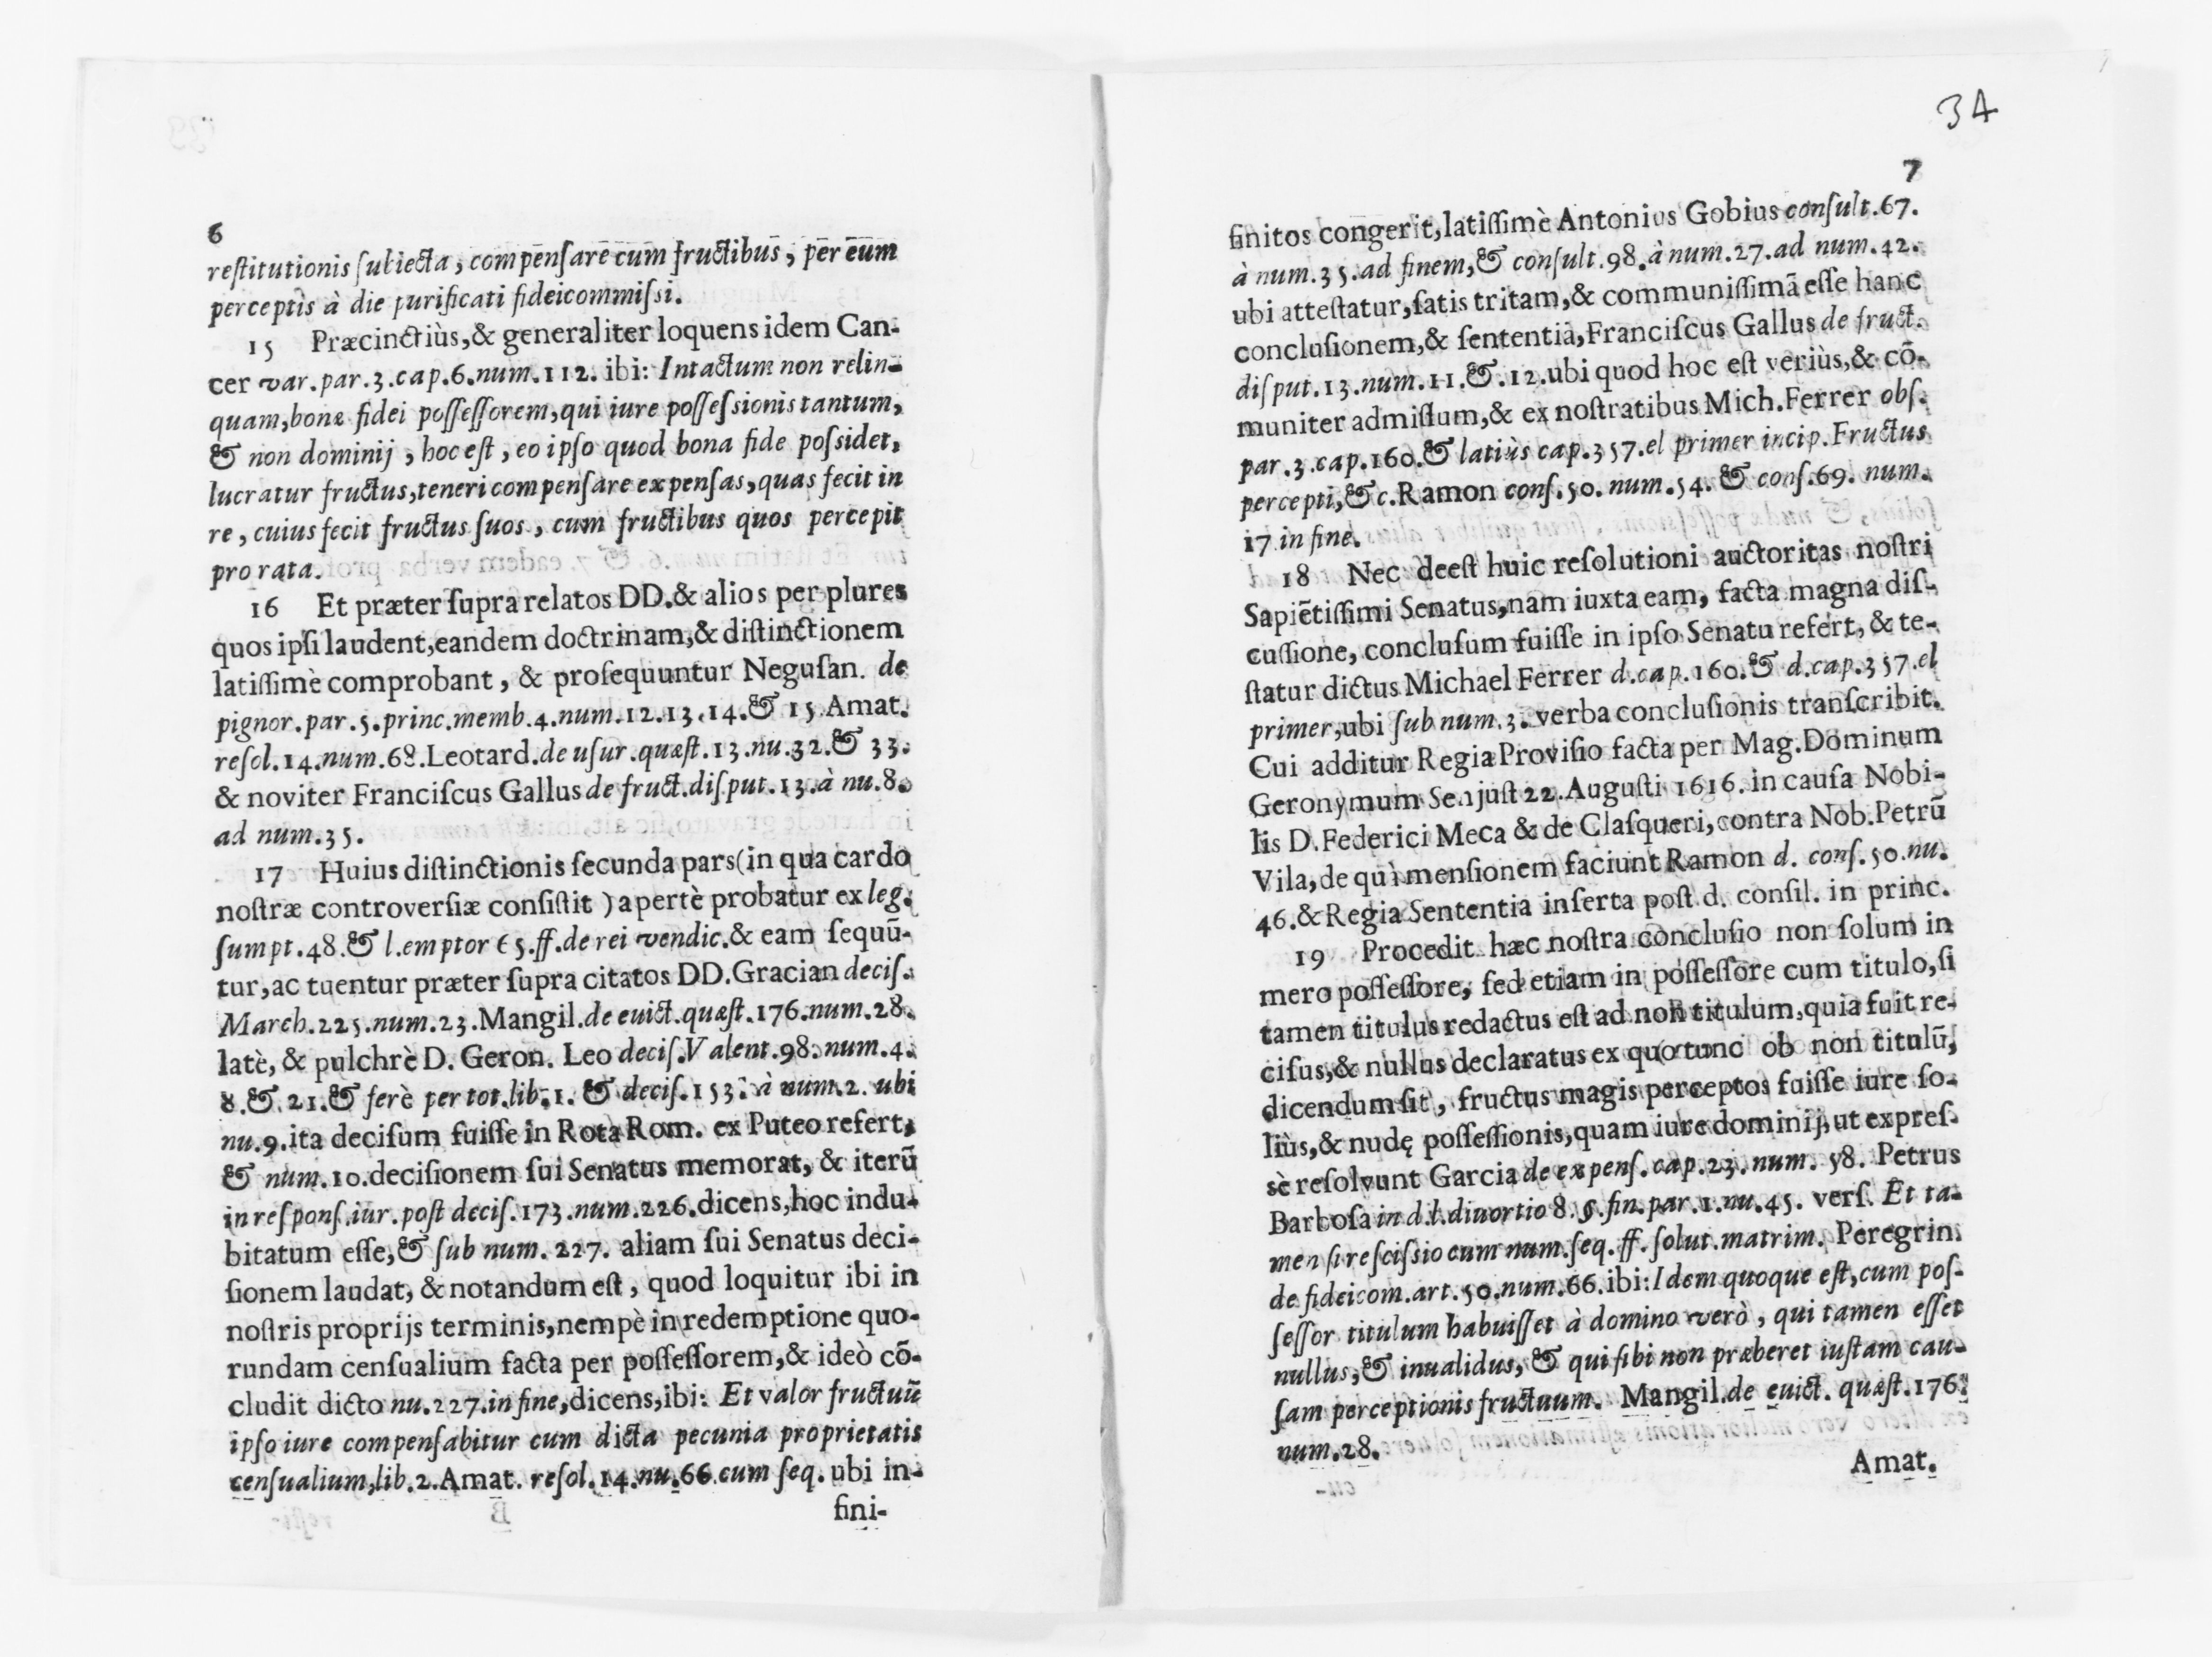 6
restitutionis subiecta, compensare cum fructibus, per eum
perceptis à die purificati fideicommissi.
15 Præcinctiùs,& generaliter loquens idem Can-
cer var.par.3.cap.6.num.112. ibi: Intactum non relin-
quam,bonæ fidei possessorem,qui iure possessionis tantum,
& non dominij, hoc est, eo ipso quod bona fide possidet,
lucratur fructus,teneri compensare expensas,quas fecit in
re, cuius fecit fructus suos, cum fructibus quos percepit
pro rata.
16 Et præter supra relatos DD.& alios per plures
quos ipsi laudent,eandem doctrinam,& distinctionem
latissimè comprobant, & prosequuntur Negusan. de
pignor.par.5.princ.memb.4.num.12.13.14.& 15.Amat.
resol.14.num.68.Leotard.de usur.quæst.13.nu.32.& 33.
& noviter Franciscus Gallus de fruct.disput.13.à nu.8.
ad num.35.
17 Huius distinctionis secunda pars(in qua cardo
nostræ controversiæ consistit) apertè probatur ex leg.
sumpt.48.& l.emptor 65.ff.de rei vendic.& eam sequū-
tur,ac tuentur præter supra citatos DD.Gracian decis.
March.225.num.23.Mangil.de euict.quæst.176.num.28.
latè, & pulchrè D. Geron. Leo decis.Valent.98.num.4.
8.&.21.& ferè per tot.lib.1. & decis.153. à num.2. ubi
nu.9.ita decisum fuisse in Rota Rom. ex Puteo refert,
& num.10.decisionem sui Senatus memorat, & iterū
in respons.iur.post decis.173.num.226.dicens,hoc indu-
bitatum esse,& sub num. 227. aliam sui Senatus deci-
sionem laudat, & notandum est, quod loquitur ibi in
nostris proprijs terminis,nempè in redemptione quo-
rundam censualium facta per possessorem,& ideò cō-
cludit dicto nu.227.in fine,dicens,ibi: Et valor fructuū
ipso iure compensabitur cum dicta pecunia proprietatis
censualium,lib.2.Amat. resol.14.nu.66.cum seq. ubi in-
fini-
34
7
finitos congerit,latissimè Antonius Gobius consult.67.
à num.35.ad finem,& consult.98.à num.27.ad num.42.
ubi attestatur,satis tritam,& communissimā esse hanc
conclusionem,& sententiā,Franciscus Gallus de fruct.
disput.13.num.11.&.12.ubi quod hoc est veriùs,& cō-
muniter admissum,& ex nostratibus Mich.Ferrer obs.
par.3.cap.160.& latiùs cap.357.el primer incip.Fructus
percepti,&c.Ramon cons.50. num.54. & cons.69. num.
17.in fine.
18 Nec deest huic resolutioni auctoritas nostri
Sapiētissimi Senatus,nam iuxta eam, facta magna dis-
cussione, conclusum fuisse in ipso Senatu refert, & te-
statur dictus Michael Ferrer d.cap.160.& d.cap.357.el
primer,ubi sub num.3. verba conclusionis transcribit.
Cui additur Regia Provisio facta per Mag.Dominum
Geronymum Senjust 22.Augusti 1616. in causa Nobi-
lis D.Federici Meca & de Clasqueri,contra Nob.Petrū
Vila,de quì mensionem faciunt Ramon d. cons.50.nu.
46.& Regia Sententia inserta post d. consil. in princ.
19 Procedit hæc nostra conclusio non solum in
mero possessore, sed etiam in possessore cum titulo,si
tamen titulus redactus est ad non titulum,quia fuit re-
cisus,& nullus declaratus ex quo tunc ob non titulū,
dicendum sit, fructus magis perceptos fuisse iure so-
liùs,& nudę possessionis,quam iure dominij,ut expres-
sè resolvunt Garcia de expens.cap.23.num. 58. Petrus
Barbosa in d.l.diuortio 8.§.fin.par.1.nu.45. vers. Et ta-
men si rescissio cum num.seq.ff.solut.matrim. Peregrin.
de fideicom.art.50.num.66.ibi:Idem quoque est,cum pos-
sessor titulum habuisset à domino verò, qui tamen esset
nullus,& inualidus, & qui sibi non præberet iustam cau-
sam perceptionis fructuum. Mangil.de euict. quæst.176.
num.28.
Amat.